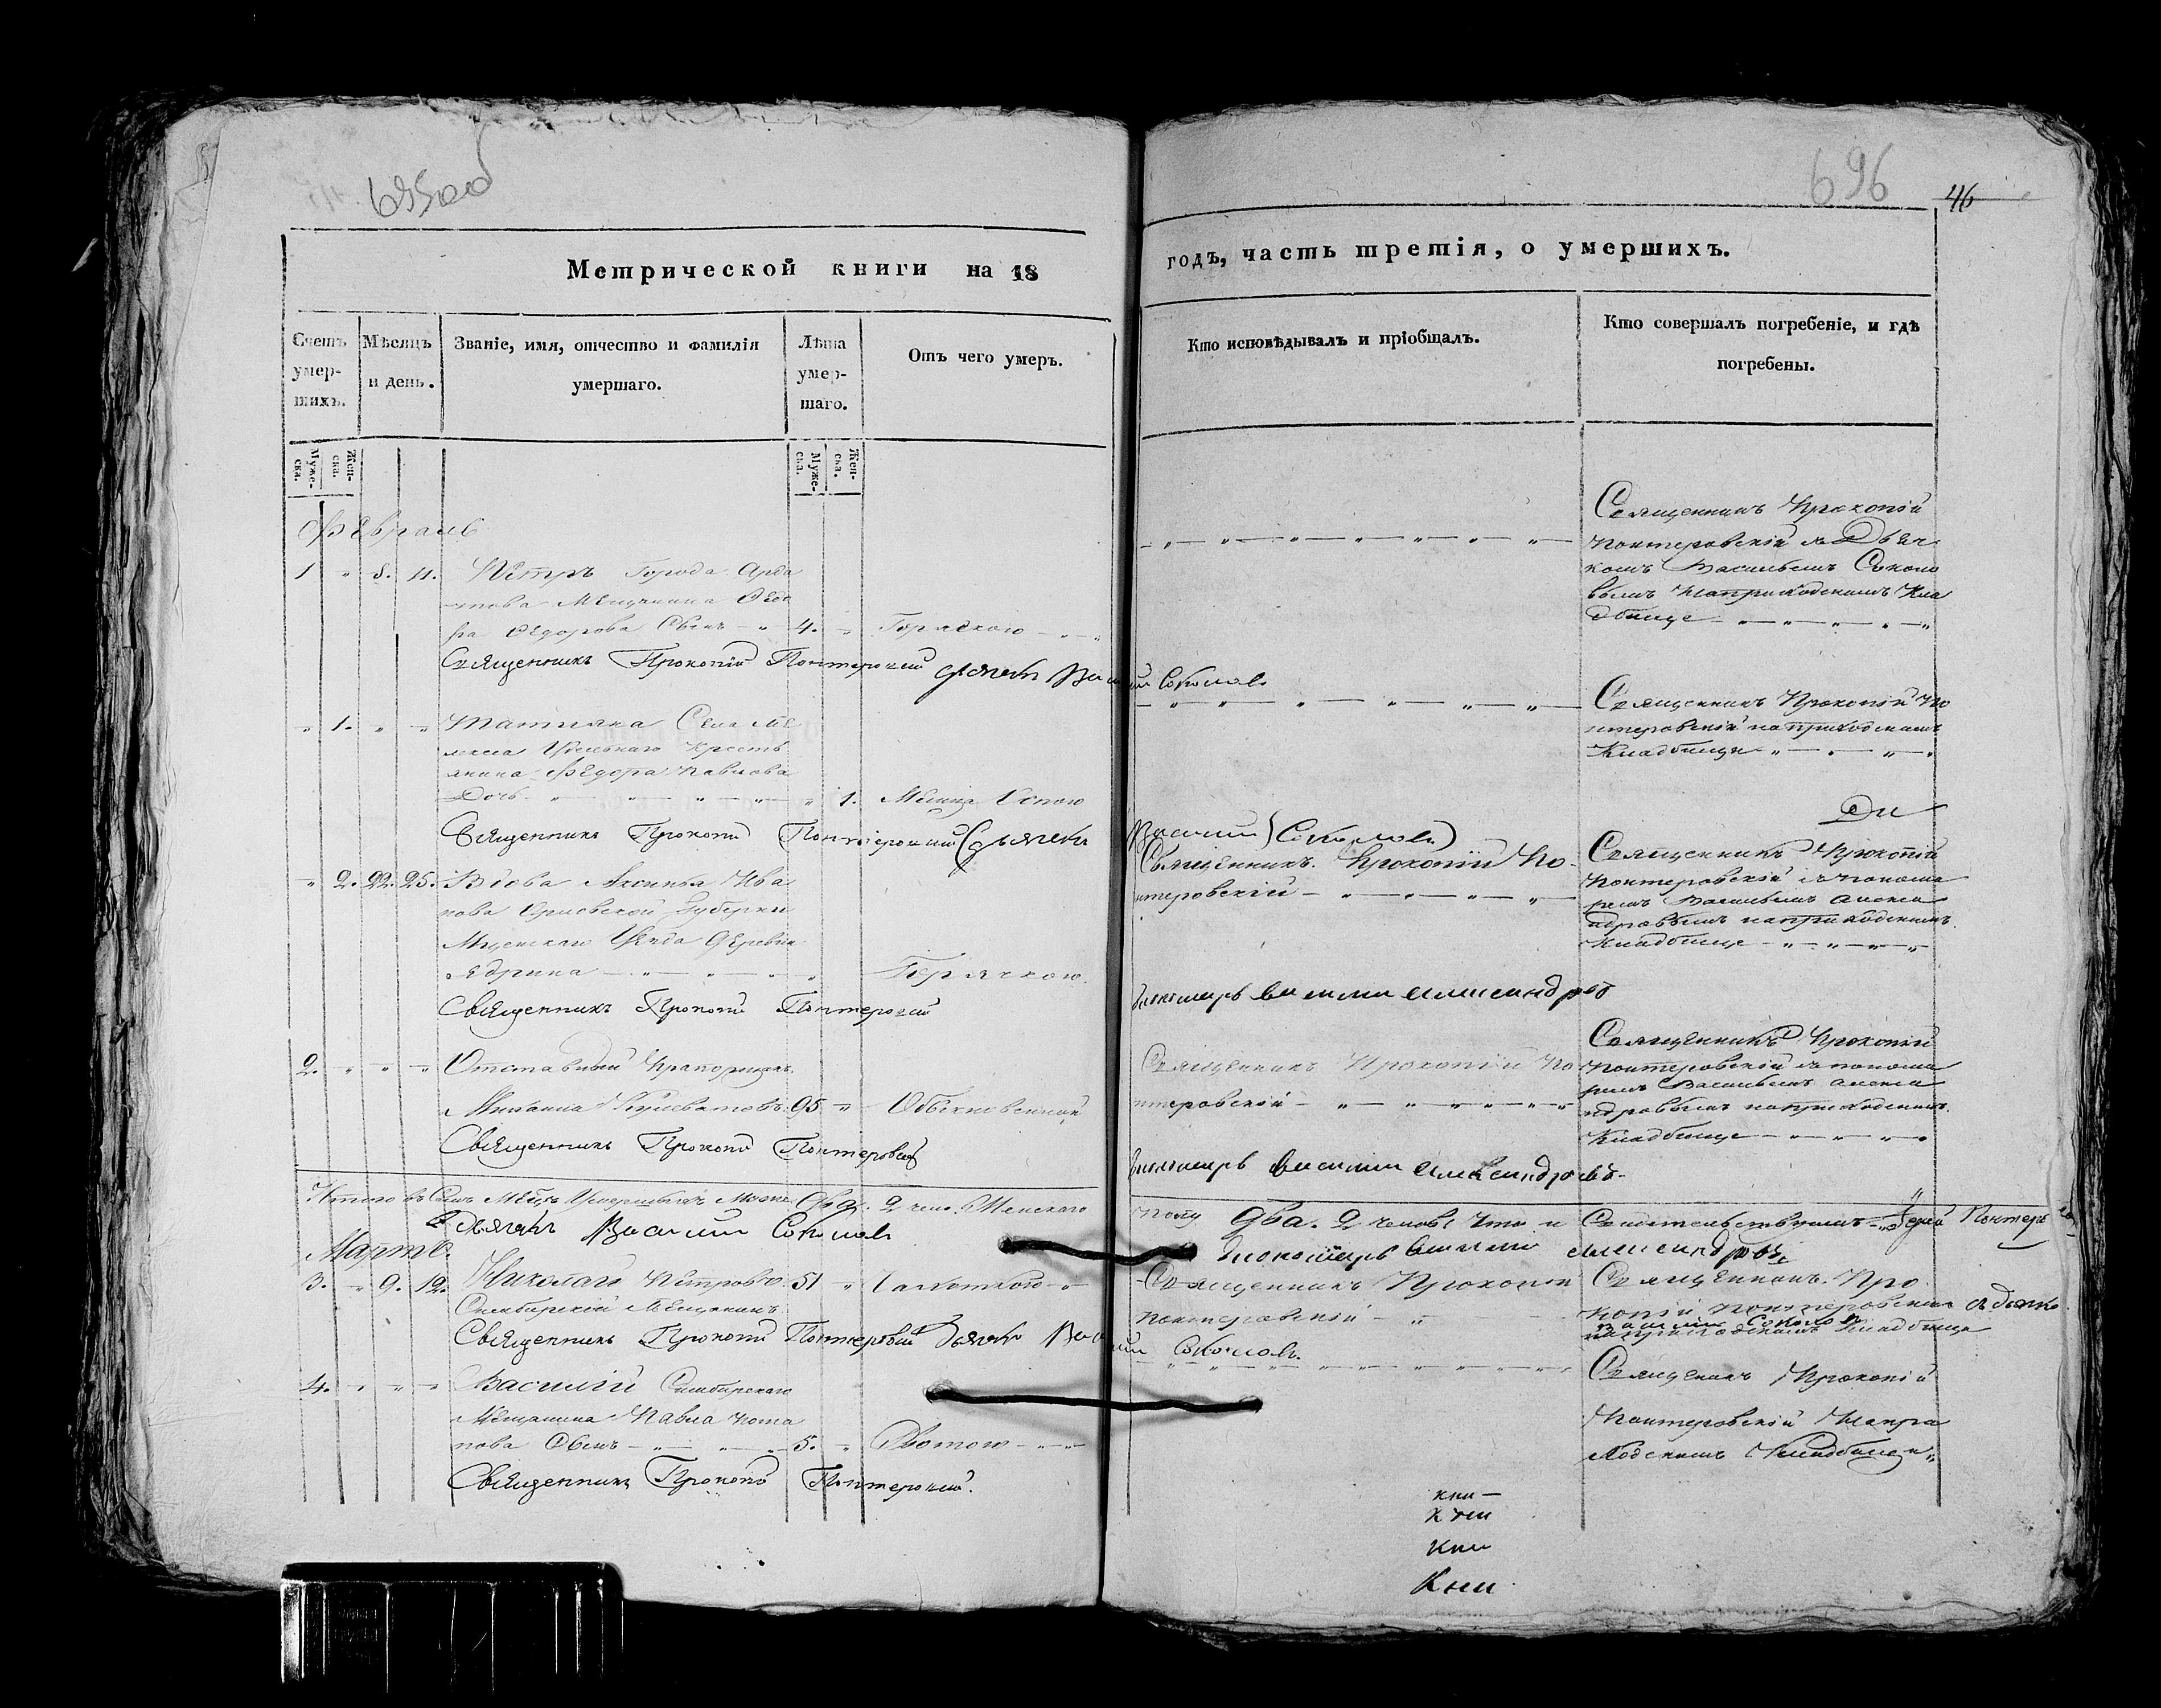 695 об
696
46
Метрической книги на 18
годъ, часть третія, о умершихъ.
Счетъ умер-шихъ.
Мѣсяцъ и день.
Званіе, имя, отчество и фамилія умершаго.
Лѣта умер-шаго.
Отъ чего умеръ.
Кто исповѣдывалъ и пріобщалъ.
Кто совершалъ погребеніе, и гдѣ погребены.
Муже-ска.
Жен-ска.
Муже-ска.
Жен-ска.
Февраль
1 " 8. 11. Петръ Города Арда
това Мещанина
Федорова Сынъ 4. " Горячкою
Священникъ Прокопій
Понтеровскій Дьяч
комъ Васильемъ Соколо
вымъ На приходскомъ Кла
дбище
Священникъ Прокопій Понтеровскій дьячекъ Василий Соколовъ
" 1. " " Татьяна Села
Удельнаго Кресть
янина Федора Павлова
Дочь " 1. Оспою
Священникъ Прокопій По
нтеровскій на приходскомъ
Кладбище
Священникъ Прокопій Понтеровскій дьячекъ Василий Соколовъ
" 2. 22. 25. Вдова Аксинья Ива
нова Орловской Губерни
Мценскаго Уезда деревни
Ядрина " Горячкою
Священникъ Прокопій По
нтеровскій
Священникъ Прокопій
Понтеровскій съ понома
ремъ Васильемъ Алекса
ндровымъ на приходскомъ
Кладбище
Священникъ Прокопій Понтеровскій
пономарь Василий Александров
2. " " " Отставный Прапорщикъ
Михаила 95 " Обыкновенной
Священникъ Прокопій По
нтеровской
Священникъ Прокопій
Понтеровскій съ понома
ремъ Васильемъ Алекса
ндровымъ на приходскомъ
Кладбище
Священникъ Прокопій Понтеровскій
пономарь Василий Александровъ
Итого въ Семъ Умершихъ Два. 2 Женскаго
полу Два. 2 Что и Свидетельствуемъ Іерей Понтер
дьячекъ Василий Соколовъ
пономарь Василий Александровъ
Мартъ.
3. " 9. 12. Николай Петровъ 51 " Чахоткою
Симбирскій Мещанинъ
Священникъ Прокопій
Понтеровскій
Священникъ Про
копій Понтеровскій съ дьячко
Василий Соколов
на приходскомъ Кладбище
Священникъ Прокопій Понтеровскій дьячекъ Василий Соколовъ.
4. " " " Василій Симбирскаго
Мещанина Павла Пота
пова Сынъ 5. "
Священникъ Прокопій
Понтеровскій На при
ходскомъ Кладбище
Священникъ Прокопій Понтеровскій.
кни
кни
кни
Кни